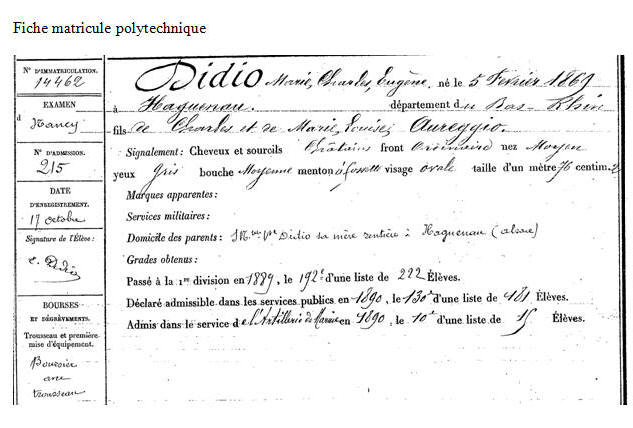 Fiche matricule polytechnique
N° D'IMMATRICULATION.
14462
EXAMEN
d
Nancy
N° D'ADMISSION.
215
DATE
D'ENREGISTREMENT.
17 octobre
Signature de l'Élève :
C. Didio
BOURSES
ET DÉGRÈVEMENTS.
Trousseau et première
mise d'équipement.
Boursier
avec
trousseau
Didio Marie, Charles, Eugène, né le 5 Fevrier 1869
à Haguenau. département du Bas-Rhin
fils de Charles et de Marie, Louise, Aureggio.
Signalement: Cheveux et sourcils Châtains front Ordinaire nez Moyen
yeux gris bouche Moyenne menton à fossette visage ovale taille d'un mètre 76 centim. 2
Marques apparentes:
Services militaires:
Domicile des parents: Didio sa mère rentière à Haguenau (alsace)
Grades obtenus:
Passé à la 1re division en 1889, le 192e d'une liste de 222 Élèves.
Déclaré admissible dans les services publics en 1890, le 130e d'une liste de 181 Élèves.
Admis dans le service de l'Artillerie de Marine en 1890, le 10e d'une liste de 15 Élèves.